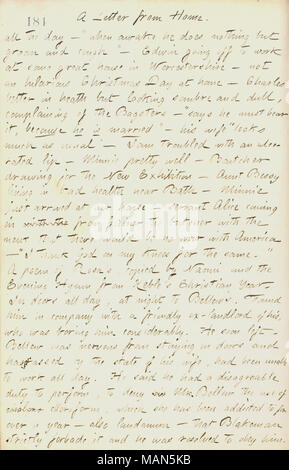 181
A Letter from Home.
all to day — "when awake he does nothing but
groan and cough" — Edwin going off to work
at some great house in Worcestershire — not
an hilarious Christmas Day at home — Charles
better in health but looking sombre and dull,
complaining of the Bagsters — says he must bear
it, because he is married — his wife "looks
much as usual" — Sam troubled with an ulcer-
ated leg — Minnie pretty well — Boutcher
drawing for the New Exhibition — Anne Bessy
living in bad health near Bath — Minnie
just arrived at our house — servant Alice coming
in from father's
ment that there would be no war with America
— "I thank God on my knees for the same."
A poem of Rosa's copied by Naomi and the
Evening Hymn from Keble's Christian Year.
In doors all day, at night to Bellew's. Found
him in company with a friendly ex-landlord of his,
who was boring him considerably. He soon left.
Bellew was nervous from staying in doors and
harassed by the state of his wife, had been unable
to work all day. He said he had a disagreeable
duty to perform, to deny Mrs Bellew the use of
chloroform, which she has been addicted to for
over a year — also laudanum — that Bakeman
strictly forbade it and he was resolved to obey him.
alamy
Image ID: MAN5KB
www.alamy.com